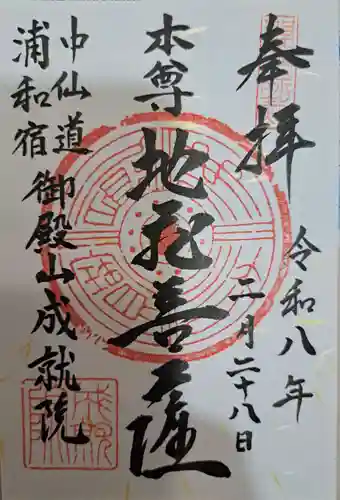 奉拝
令和八年
二月二十八日
本尊
地蔵善薩
中仙道
浦和宿
御殿山成就院